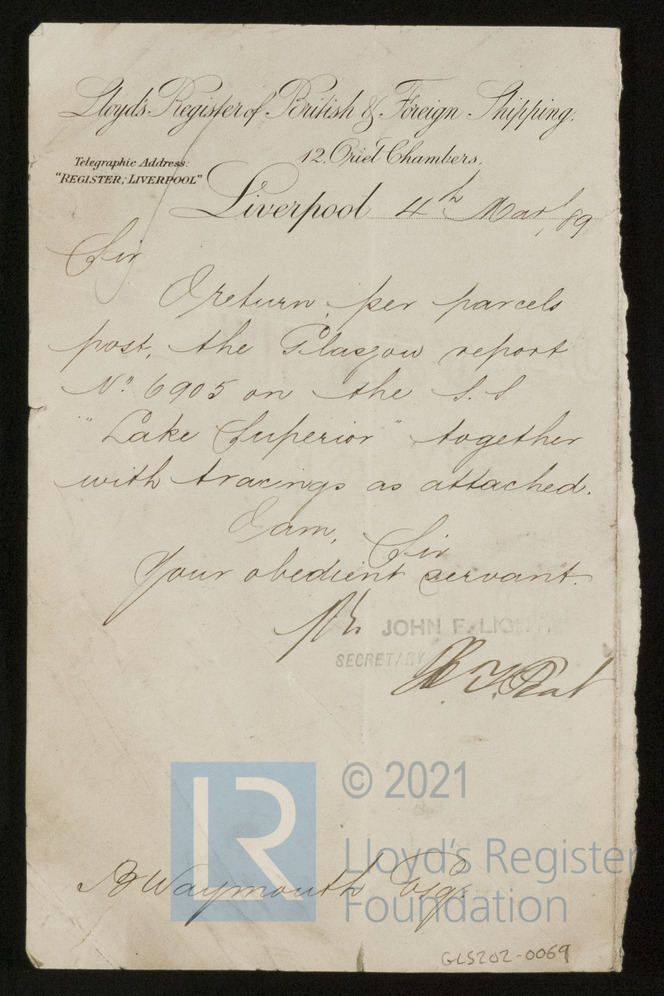 Lloyd's Register of British & Foreign Shipping.
12, Oriel Chambers,
Telegraphic Address:
"REGISTER, LIVERPOOL"
Liverpool 4th Mar, 89
Sir
I return, per parcels
post, the Glasgow report
No 6905 on the S.S
"Lake Superior" together
with tracings as attached.
I am, Sir
Your obedient servant.
JOHN F. LIGHT
SECRETARY
© 2021
LR
Lloyd's Register
Foundation
B Waymouth Esqr
GLS202-0069